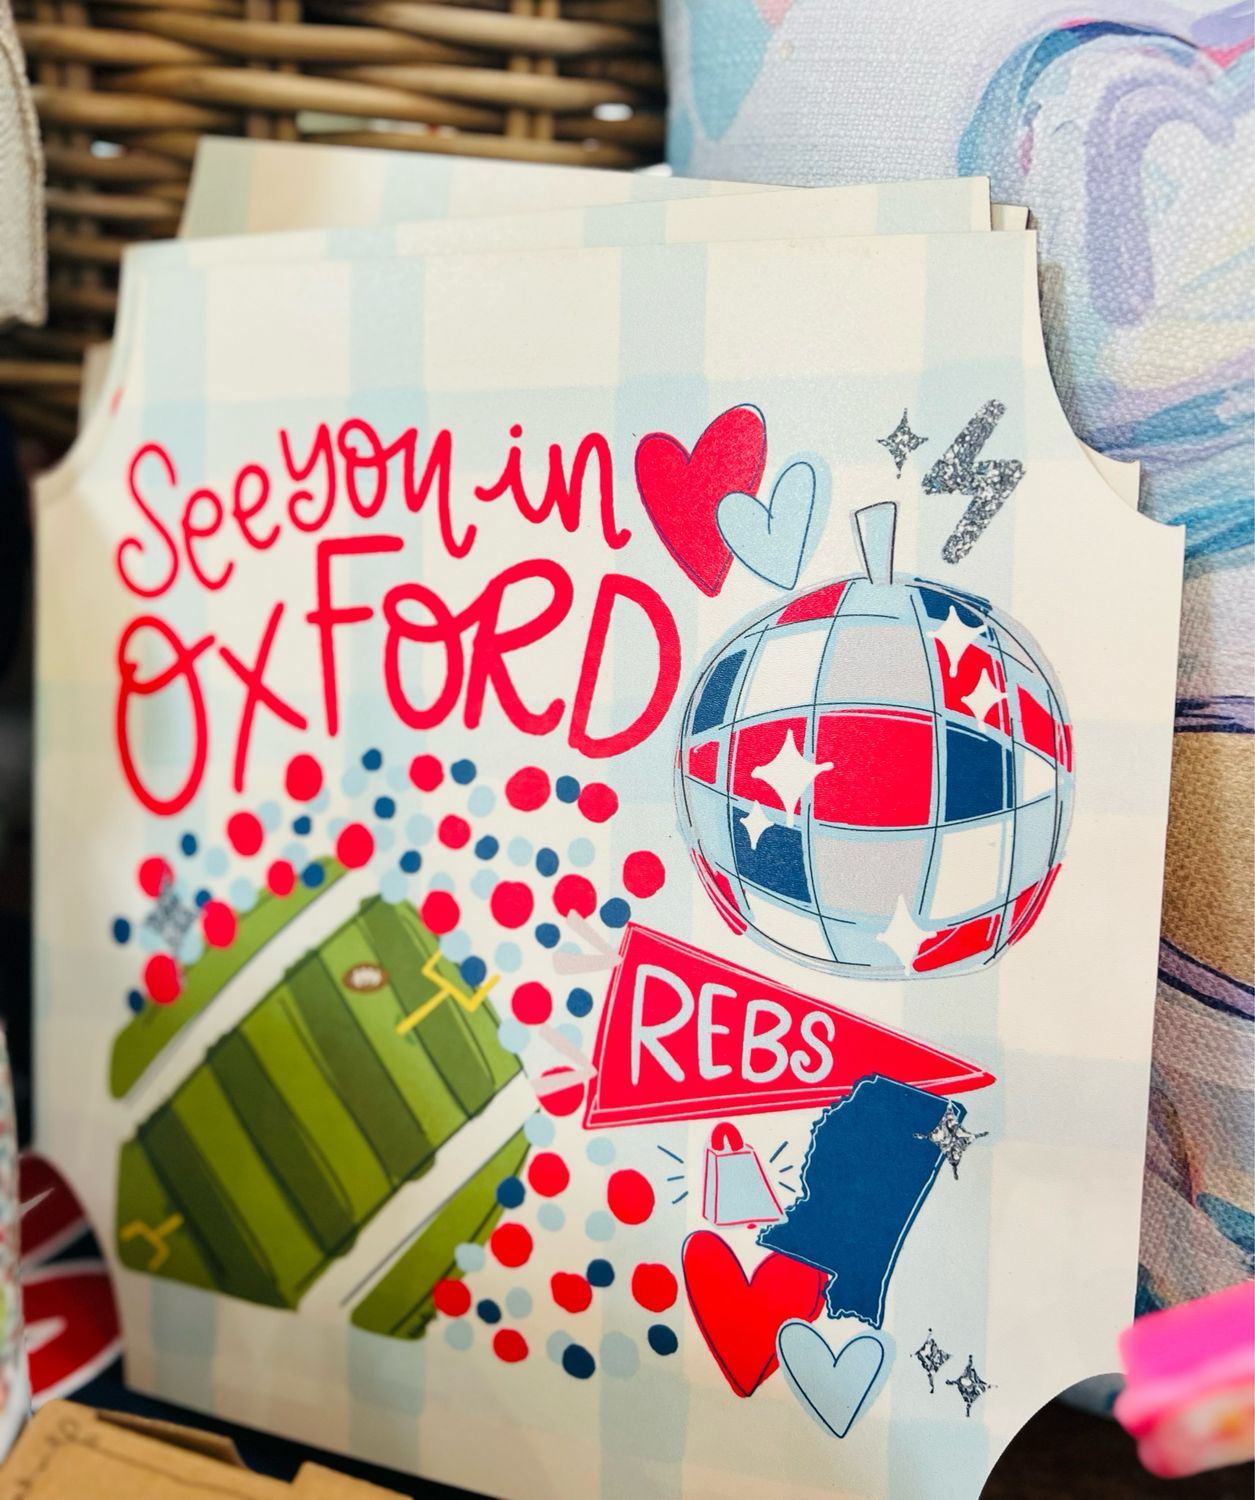 See you in
OXFORD
REBS